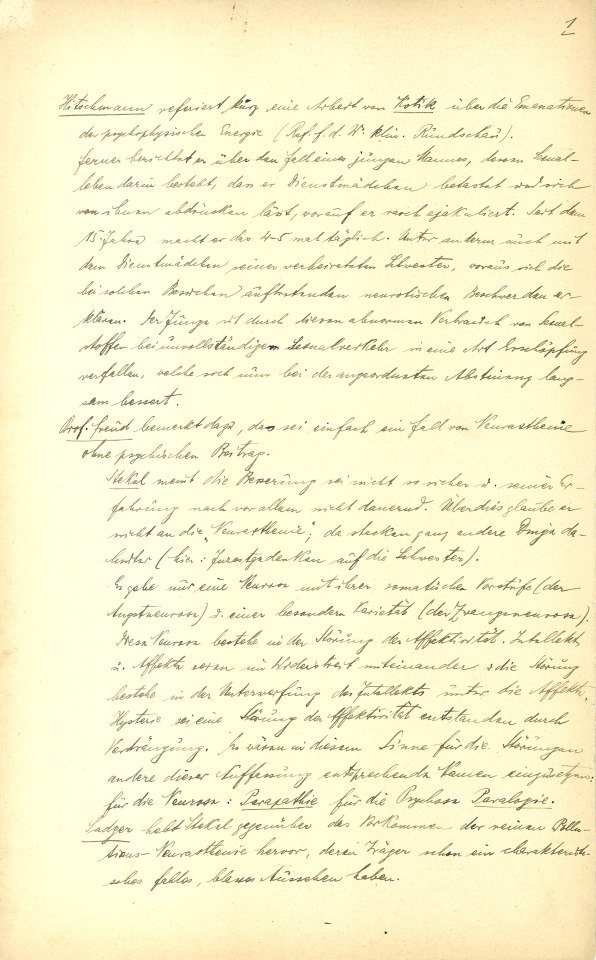 1
Hitschmann referiert kurz eine Arbeit von Kotik über die Emanationen
der psychophysischen Energie (Ref. f. d. W. klin. Rundschau).
ferner berichtet er über den Fall eines jungen Mannes, dessen Sexual-
leben darin besteht, dass er Dienstmädchen betastet und sich
von ihnen abdrücken lässt, worauf er rasch ejakuliert. Seit dem
15. Jahre macht er das 4-5 mal täglich. Unter anderm auch mit
dem Dienstmädchen seiner verheirateten Schwester, woraus sich die
bei solchen Besuchen auftretenden neurotischen Beschwerden er-
klären. Der Junge ist durch diesen abnormen Verbrauch von Sexual-
stoffen bei unvollständigem Sexualverkehr in eine Art Erschöpfung
verfallen, welche sich nun bei der angeordneten Abstinenz lang-
sam bessert.
Prof. Freud bemerkt dazu, das sei einfach ein Fall von Neurasthenie
ohne psychischen Beitrag.
Stekel meint die Besserung sei nicht so sicher u. seiner Er-
fahrung nach vor allem nicht dauernd. Überdies glaube er
nicht an die "Neurasthenie"; da stecken ganz andere Dinge da-
hinter (hier: Inzestgedanken auf die Schwester).
Es gebe nur eine Neurose mit ihrer somatischen Vorstufe (der
Angstneurose) u. einer besondern Varietät (der Zwangsneurose).
Diese Neurose bestehe in der Störung der Affektivität. Intellekt
u. Affekte seien im Widerstreit miteinander u. die Störung
bestehe in der Unterwerfung des Intellekts unter die Affekte.
Hysterie sei eine Störung der Affektivität entstanden durch
Verdrängung. Es wären in diesem Sinne für die Störungen
andere dieser Auffassung entsprechende Namen einzusetzen:
für die Neurose: Parapathie für die Psychose Paralogie.
Sadger hebt Stekel gegenüber das Vorkommen der reinen Pollu-
tions-Neurasthenie hervor, deren Träger schon ein charakteristi-
sches fahles, blasses Aussehen haben.